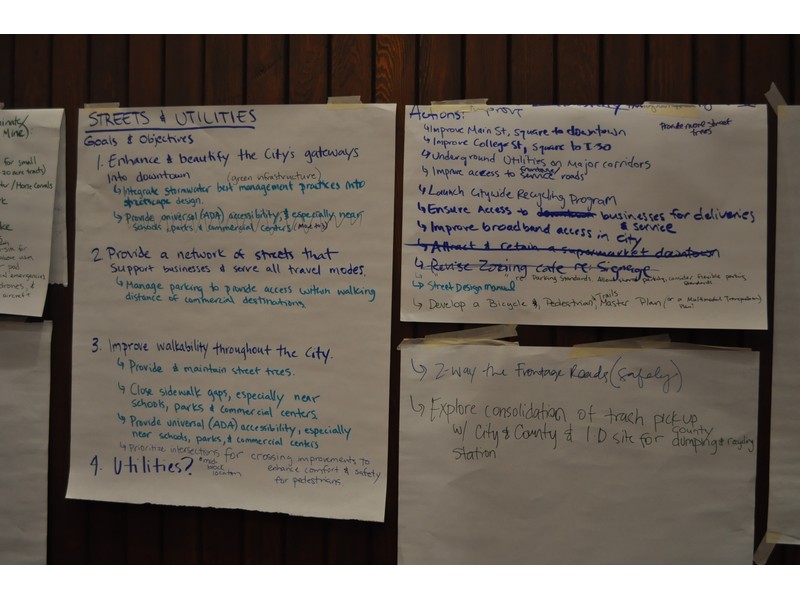 STREETS & UTILITIES
Goals & Objectives
1. Enhance & beautify the City's gateways
into downtown (green infrastructure)
↳ Integrate stormwater best management practices into
streetscape design.
↳ Provide universal (ADA) accessibility, & especially near
schools, parks & commercial centers
2 Provide a network of streets that
support businesses & serve all travel modes.
↳ Manage parking to provide access within walking
distance of commercial destinations.
3. Improve walkability throughout the City.
↳ Provide & maintain street trees.
↳ Close sidewalk gaps, especially near
schools, parks & commercial centers.
↳ Provide universal (ADA) accessibility, especially
near schools, parks, & commercial centers
↳ Prioritize intersections for crossing improvements to
enhance comfort & safety
for pedestrians
*mid
block
location
4. Utilities?
Actions: Improve
↳ Improve Main St, square to downtown
Provide more street
trees
↳ Improve College St, square to I-30
↳ Underground Utilities on Major corridors
↳ Improve access to frontage service roads
↳ Launch Citywide Recycling Program
↳ Ensure Access to downtown businesses for deliveries
& service
↳ Improve broadband access in city
↳ Attract & retain a supermarket downtown
↳ Revise Zoning code re: Signage
re: Parking Standards, flexible parking
standards
↳ Street Design Manual
↳ Develop a Bicycle &, Pedestrian, & Trails Master Plan (or a Multimodal Transportation
Plan)
↳ 2-way the Frontage Roads (safely)
↳ Explore consolidation of trash pick up
w/ City & County & ID site for county dumping & recycling
station
for small